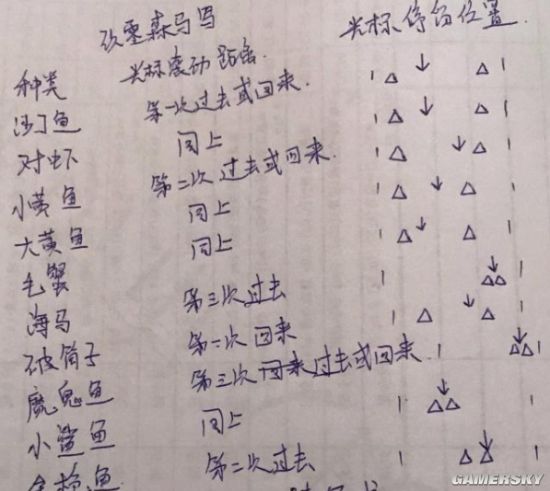 光标停留位置
种类 光标震动
沙丁鱼 第一次过去或回来.
对虾 同上
小黄鱼 第二次过去或回来.
大黄鱼 同上
毛蟹 同上
海马 第三次过去
破筒子 第一次回来
魔鬼鱼 第三次回来过去或回来.
小鲨鱼 同上
金枪鱼 第二次过去
GAMERSKY